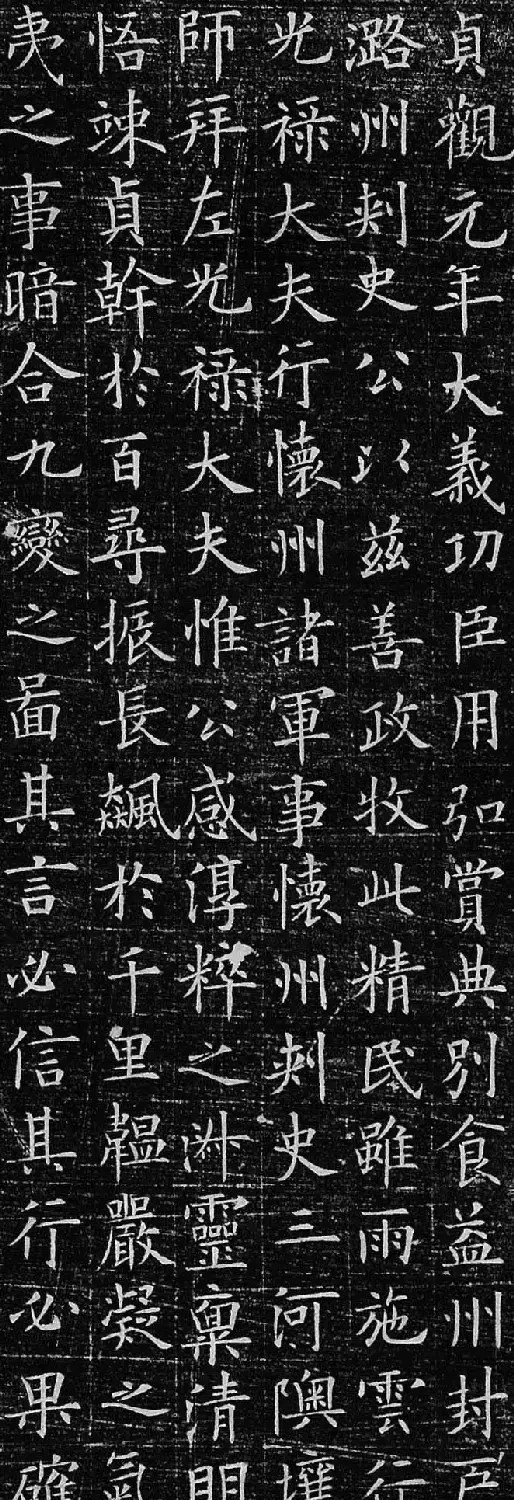 貞觀元年大義功臣用弘賞典別食益州封
潞州刺史公以茲善政牧此精民雖雨施雲行
光祿大夫行懷州諸軍事懷州刺史三河隩壤
師拜左光祿大夫惟公感淳粹之淋靈稟清明
悟竦貞幹於百尋振長飆於千里韞嚴凝之氣
夷之事暗合九變之啚其言必信其行必果確